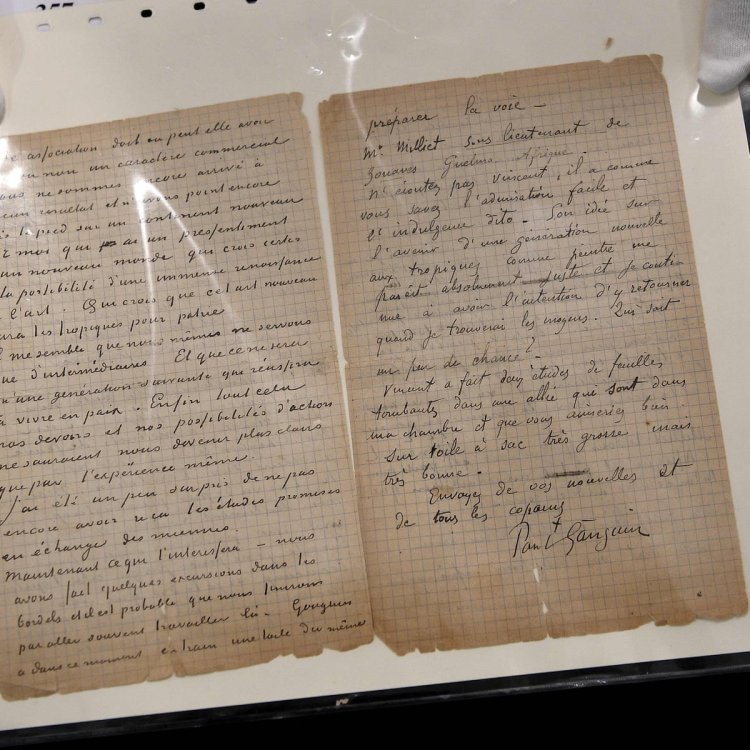 257
association dont on peut elle avoir
ou non un caractère commercial
nous ne sommes encore arrivé à
aucun resultat et n'avons point encore
mis le pied sur un continent nouveau
moi qui ai un presentiment
d'un nouveau monde qui crois certes
à la possibilité d'une immense renaissance
de l'art. Qui crois que cet art nouveau
aura les tropiques pour patrie
Il me semble que nous mêmes ne servons
que d'intermédiaires. Et que ce ne sera
qu'une génération suivante qui réussira
à vivre en paix. Enfin tout cela
nos devoirs et nos possibilités d'action
ne sauraient nous devenir plus clairs
que par l'expérience même.
J'ai été un peu surpris de ne pas
encore avoir reçu les études promises
en échange des miennes.
Maintenant ce qui t'interessera – nous
avons fait quelques excursions dans les
bordels et il est probable que nous finirons
par aller souvent travailler là. Gauguin
a dans ce moment en train une toile du même
préparer la voie –
Mr Milliet sous lieutenant de
Zouaves Guelma Afrique.
N'écoutez pas Vincent, il a comme
vous savez l'admiration facile et
l'indulgence dito. Son idée sur
l'avenir d'une génération nouvelle
aux tropiques comme peintre me
parait absolument juste et je conti-
nue à avoir l'intention d'y retourner
quand je trouverai les moyens. Qui sait
un peu de chance?
Vincent a fait deux études de feuilles
tombantes dans une allée qui sont dans
ma chambre et que vous aimeriez bien
sur toile à sac très grosse mais
très bonne.
Envoyez de vos nouvelles et
de tous les copains
Paul Gauguin